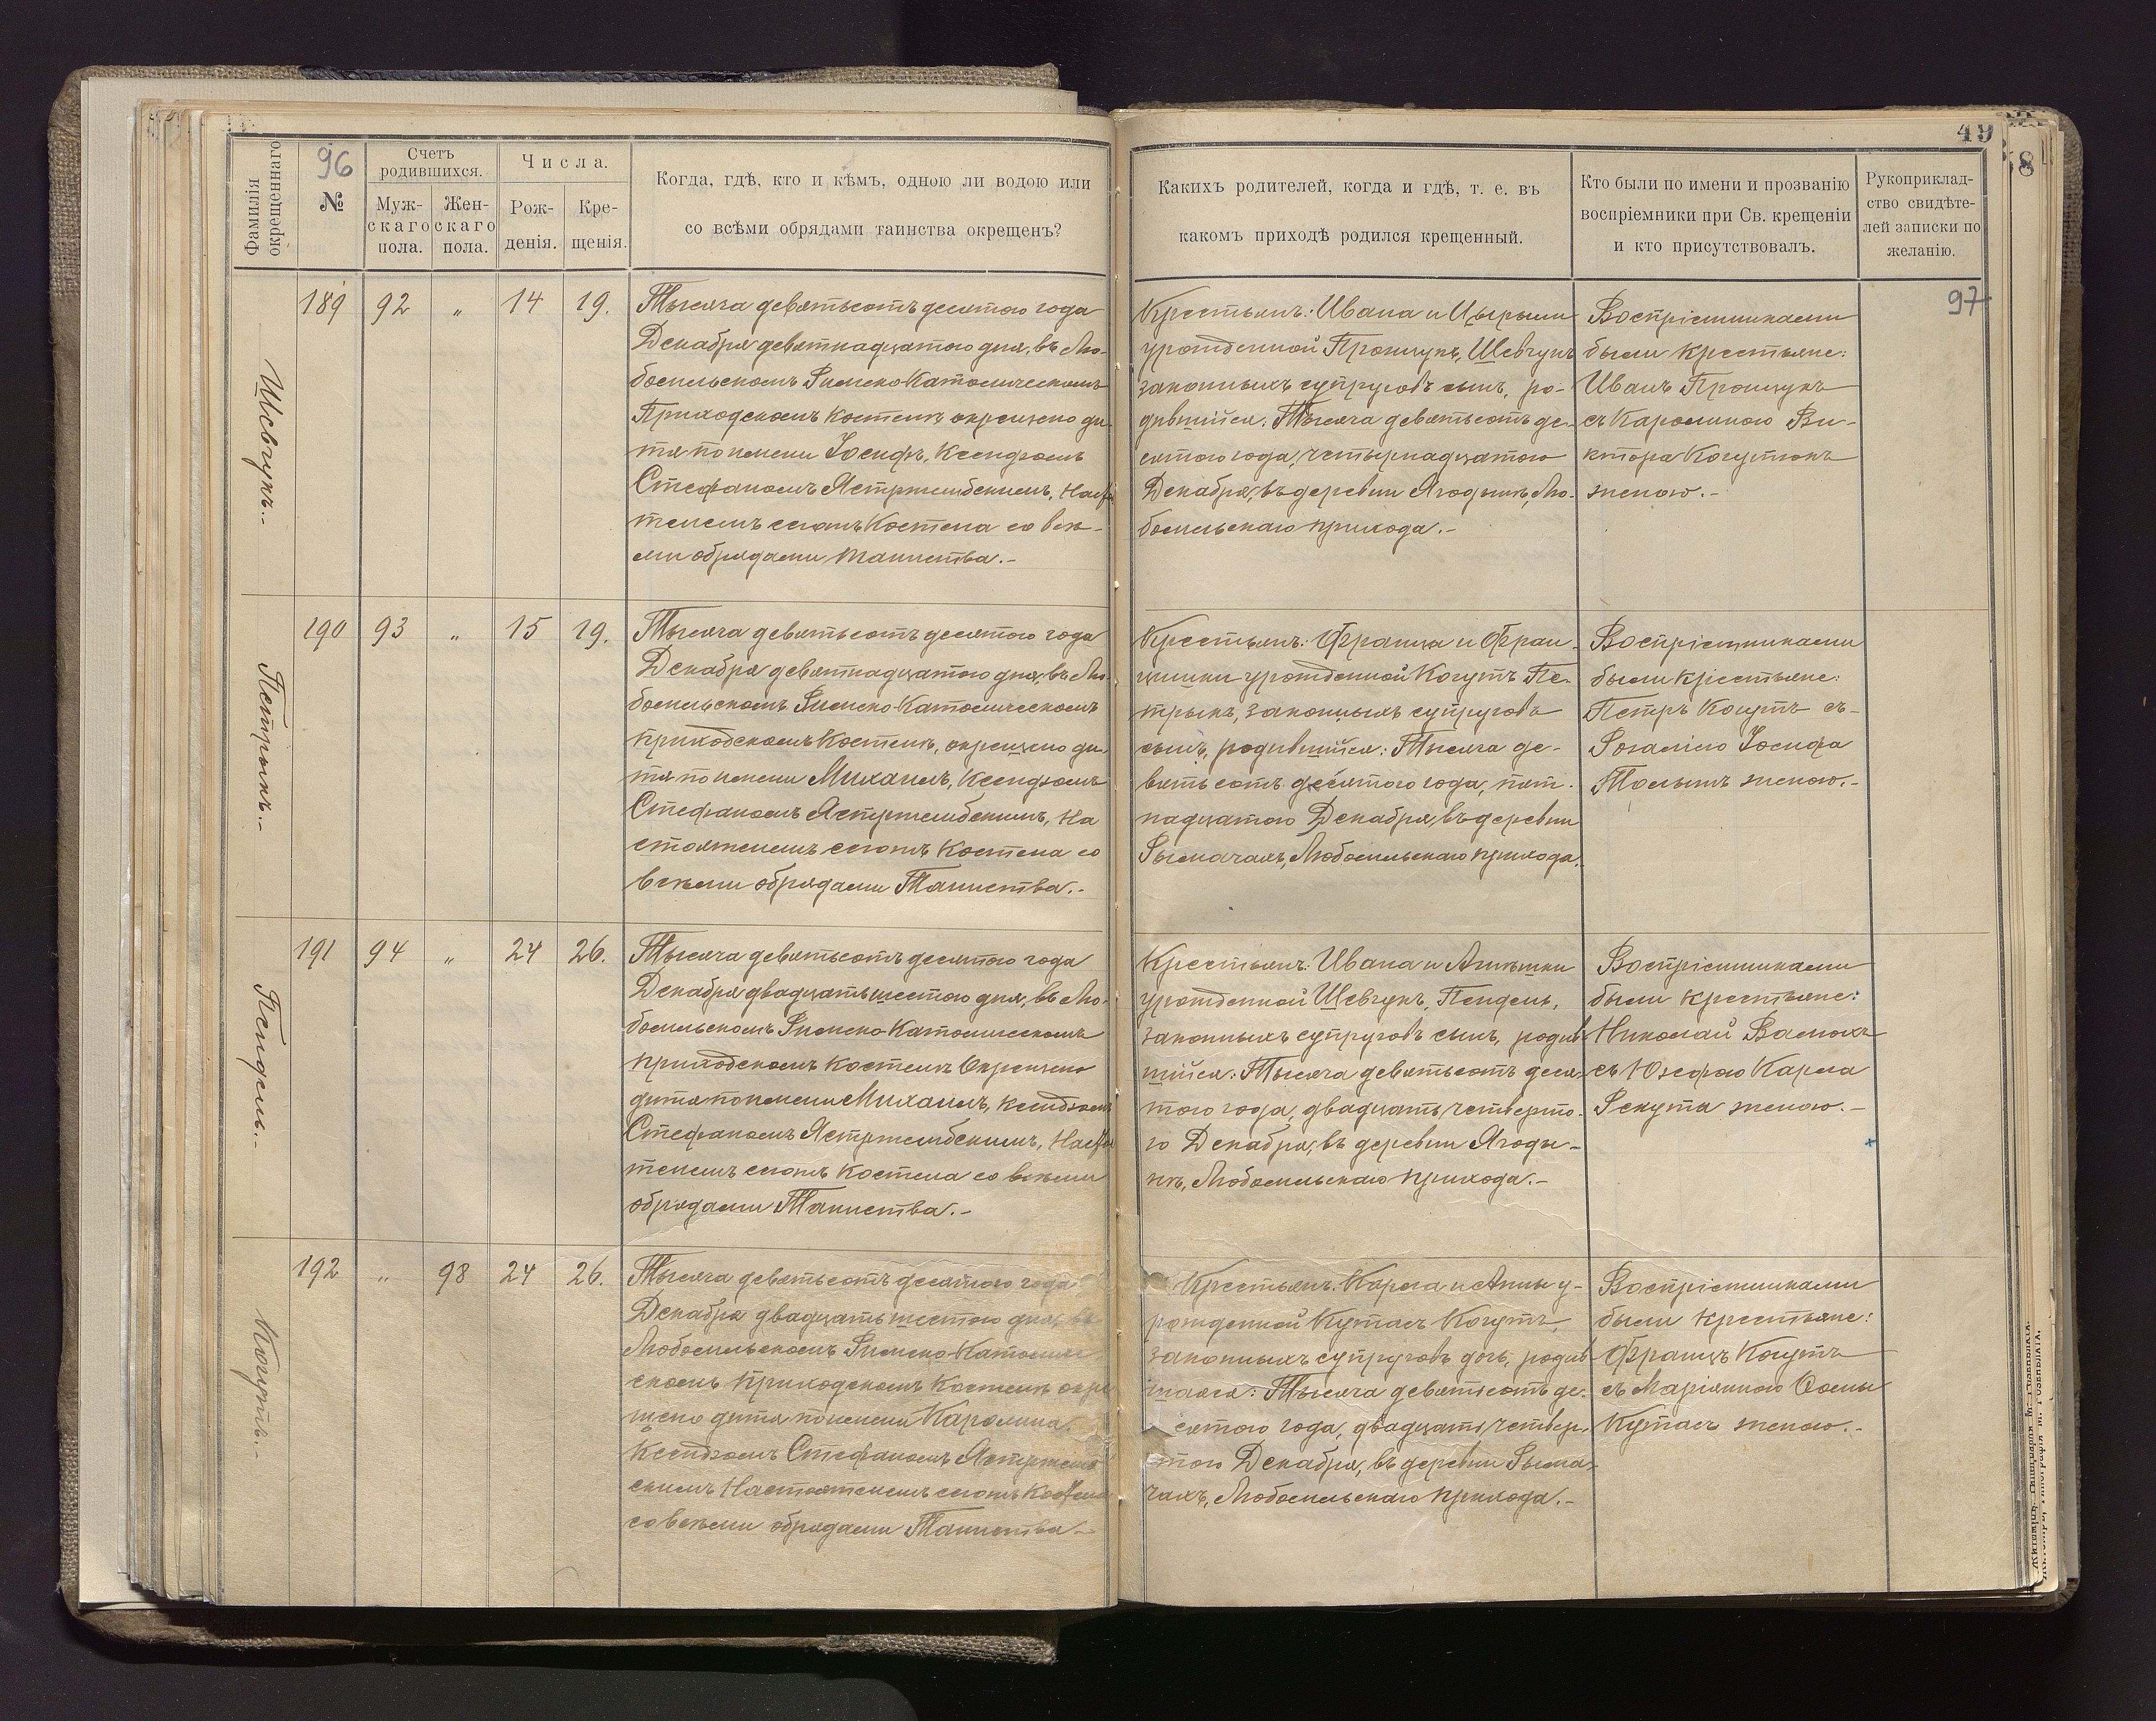 49
58
Фамилія окрещеннаго
96
№
Счетъ родившихся.
Муж-
скаго
пола.
Жен-
скаго
пола.
Числа.
Рож-
денія.
Кре-
щенія.
Когда, гдѣ, кто и кѣмъ, одною ли водою или
со всѣми обрядами таинства окрещенъ?
Какихъ родителей, когда и гдѣ, т. е. въ
какомъ приходѣ родился крещенный.
Кто были по имени и прозванію
воспріемники при Св. крещеніи
и кто присутствовалъ.
Рукоприклад-
ство свидѣте-
лей записки по
желанію.
97
Шевчукъ.-
189 92 „ 14 19.
Тысяча девятьсотъ десятого года
Декабря девятнадцатого дня, въ Лю-
бомльскомъ Римско-Католическомъ
Приходскомъ Костелѣ окрещено ди-
тя по имени Іосифъ, Ксендзомъ
Стефаномъ Ястржембскимъ, Настоя
телемъ сего Костела со всѣ-
ми обрядами таинства.-
Крестьянъ: Ивана и
урожденной Прончукъ, Шевчукъ
законныхъ супруговъ сынъ, ро-
дившійся: Тысяча девятьсотъ де-
сятого года, четырнадцатого
Декабря, въ деревни Ягодинѣ, Лю-
бомльскаго прихода.-
Воспріемниками
были крестьяне:
Иванъ Прончукъ
съ Каролиною Ви-
ктора Когутюкъ
женою.-
Петрыкъ.-
190 93 „ 15 19.
Тысяча девятьсотъ десятого года
Декабря девятнадцатого дня, въ Лю-
бомльскомъ Римско-Католическомъ
приходскомъ Костелѣ, окрещено ди-
тя по имени Михаилъ, Ксендзомъ
Стефаномъ Ястржембскимъ, На
стоятелемъ сего Костела со
всѣми обрядами Таинства.-
Крестьянъ: Франца и Фран-
цишки урожденной Когутъ Пе-
трыкъ, законныхъ супруговъ
сынъ, родившійся: Тысяча де-
вятьсотъ десятого года, пят-
надцатого Декабря, въ деревни
Рымачахъ, Любомльскаго прихода.-
Воспріемниками
были крестьяне:
Петръ Когутъ съ-
Розаліею Іосифа
женою.-
Пендель.-
191 94 „ 24 26.
Тысяча девятьсотъ десятого года
Декабря двадцать шестого дня, въ Лю-
бомльскомъ Римско-Католическомъ
приходскомъ Костелѣ Окрещено
дитя по имени Михаилъ, Ксендзомъ
Стефаномъ Ястржембскимъ, Настоя
телемъ сего Костела со всѣми
обрядами Таинства.-
Крестьянъ: Ивана и Агнѣшки
урожденной Шевчукъ, Пендель,
законныхъ супруговъ сынъ, родив-
шійся: Тысяча девятьсотъ деся-
того года, двадцать четверто-
го Декабря, въ деревни Ягоди-
нѣ, Любомльскаго прихода.-
Воспріемниками
были крестьяне:
Николай
съ Юзефою Карла
Рекута женою.-
Когутъ.-
192 „ 98 24 26.
Тысяча девятьсотъ десятого года
Декабря двадцать шестого дня, въ
Любомльскомъ Римско-Католиче
скомъ приходскомъ Костелѣ окре
щено дитя по имени Каролина,
Ксендзомъ Стефаномъ Ястржемб
скимъ Настоятелемъ сего Костела
со всѣми обрядами Таинства.-
Крестьянъ: Карла и Анны у-
рожденной Куташъ Когутъ,
законныхъ супруговъ дочь, родив-
шаяся: Тысяча девятьсотъ де-
сятого года, двадцать четвер-
того Декабря, въ деревни Рыма-
чахъ, Любомльскаго прихода.-
Воспріемниками
были крестьяне:
Францъ Когутъ
съ Маріянною Фомы
Куташъ женою.-